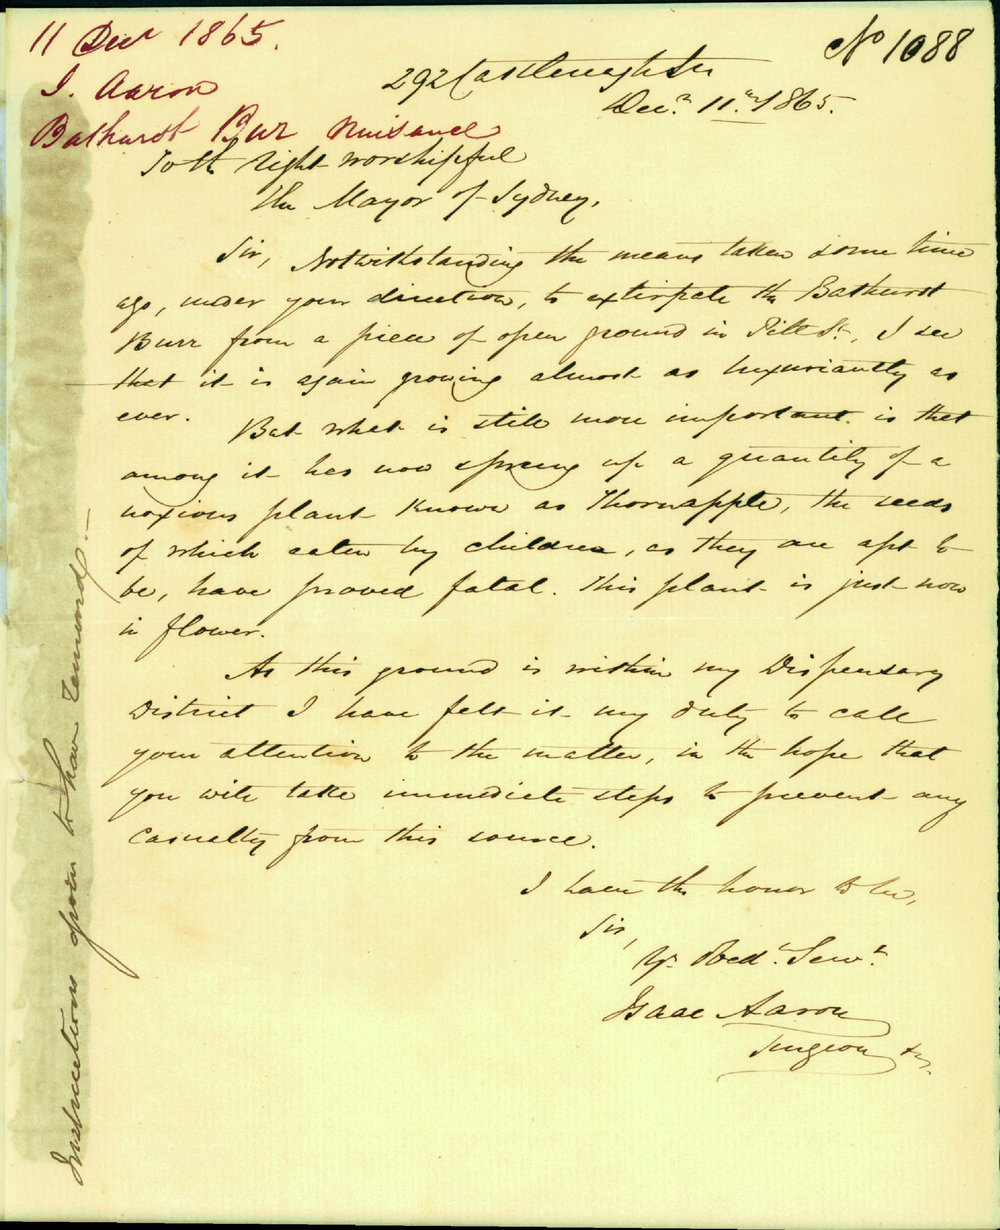 11 Decr 1865.
I. Aaron
Bathurst Bur Nuisance
No 1088
292 Castlereagh St
Decr 11th 1865.
To the right worshipful
the Mayor of Sydney,
Sir, Notwithstanding the means taken some time
ago, under your direction, to extirpate the Bathurst
Burr from a piece of open ground in Pitt St, I see
that it is again growing almost as luxuriantly as
ever. But what is still more important is that
among it has now sprung up a quantity of a
noxious plant known as Thornapple, the seeds
of which eaten by children, as they are apt to
be, have proved fatal. This plant is just now
in flower.
As this ground is within my Dispensary
District I have felt it my duty to call
your attention to the matter, in the hope that
you will take immediate steps to prevent any
casualty from this source.
I have the honor to be,
Sir,
Yr. Obedt. Servt.
Isaac Aaron
Surgeon &c.
Instructions given to have removed.—